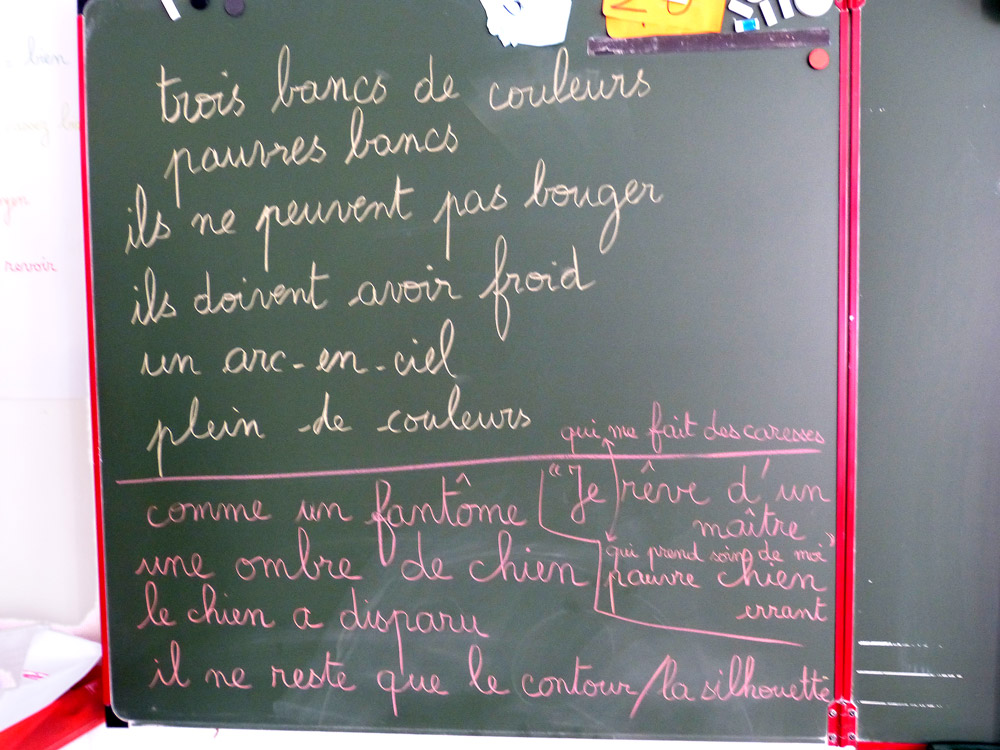 bien
revoir
trois bancs de couleurs
pauvres bancs
ils ne peuvent pas bouger
ils doivent avoir froid
un arc-en-ciel
plein de couleurs
comme un fantôme
une ombre de chien
le chien a disparu
il ne reste que le contour/la silhouette
qui me fait des caresses
"Je rêve d'un
maître"
qui prend soin de moi
pauvre chien
errant